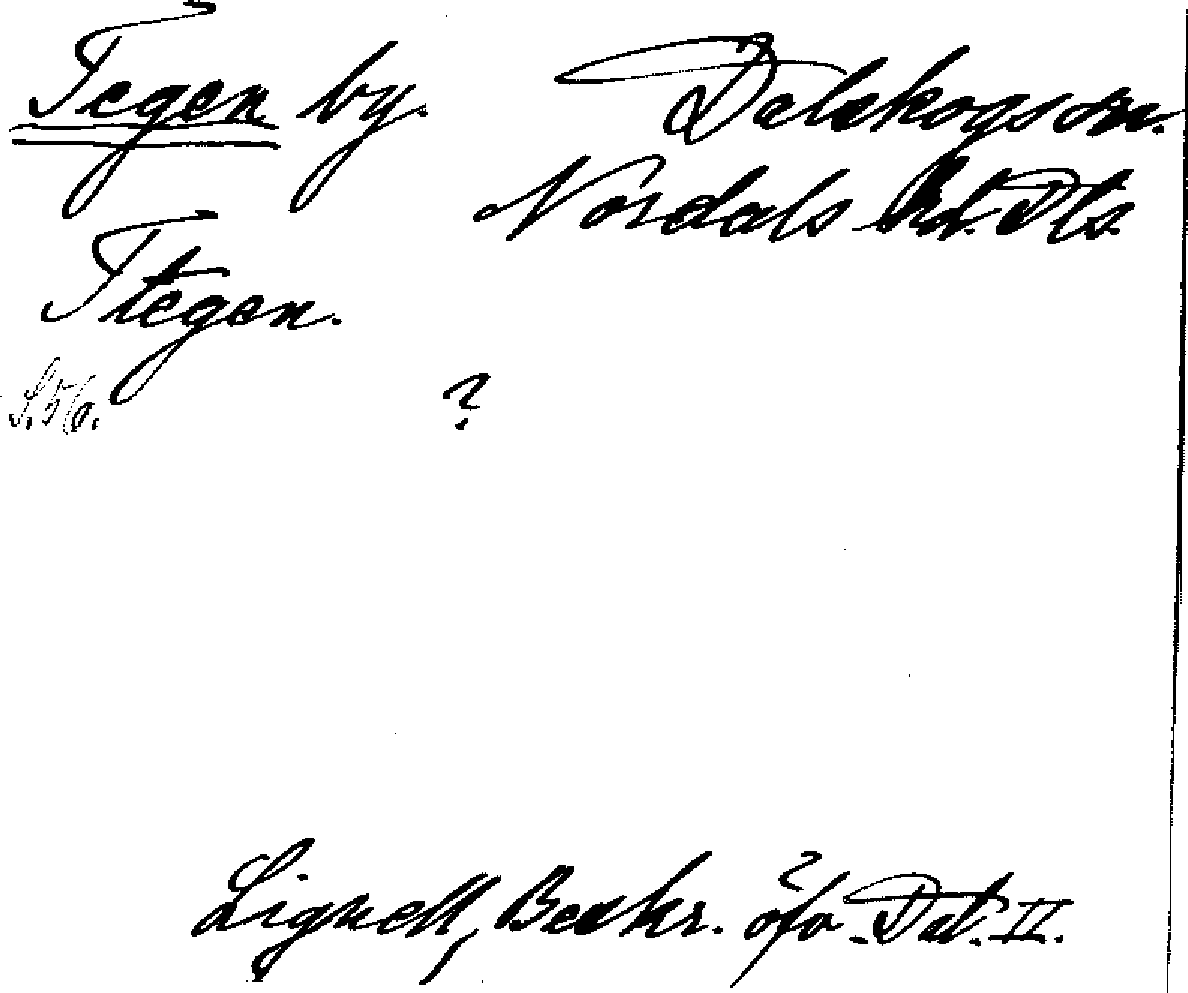 Tegen by. Dalskogs sn.
Nordals hd. Dls.
Ttegen.
S. 56. ?
Lignell, Beskr. öfv. Dal. II.